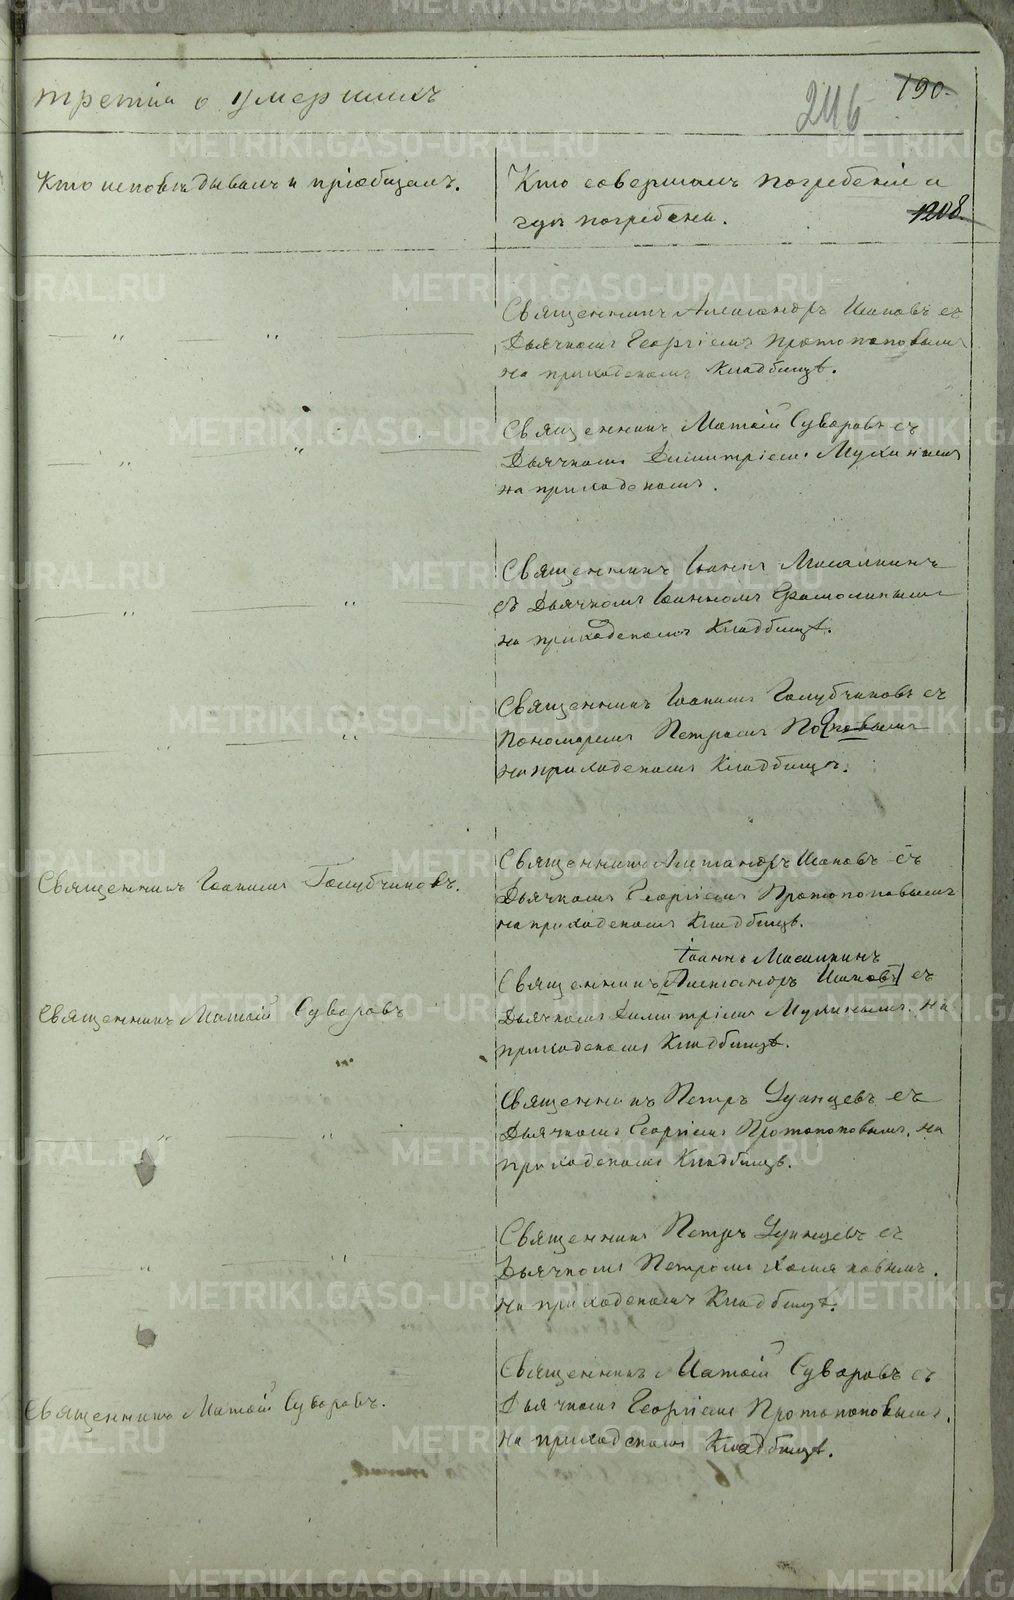 третія о умершихъ
246
190
Кто исповѣдывалъ и пріобщалъ.
Кто совершалъ погребеніе и
гдѣ погребены.
1208
Священникъ Александръ Иваковъ съ
Дьячкомъ Георгіемъ Протопоповымъ
на приходскомъ Кладбищѣ.
Священникъ Матѳій Суворовъ съ
Дьячкомъ Димитріемъ Мухинымъ
на приходскомъ.
Священникъ Іоаннъ Масалкинъ
съ Дьячкомъ Іоанномъ
на приходскомъ Кладбищѣ.
Священникъ Іоаннъ Голубчиковъ съ
Пономаремъ Петромъ Поповымъ
на приходскомъ Кладбищѣ.
Священникъ Іоаннъ Голубчиковъ.
Священникъ Александръ Иваковъ съ
Дьячкомъ Георгіемъ Протопоповымъ
на приходскомъ Кладбищѣ.
Священникъ Матѳій Суворовъ
Іоаннъ Масалкинъ
Священникъ Александръ Иваковъ съ
Дьячкомъ Димитріемъ Мухинымъ на
приходскомъ Кладбищѣ.
Священникъ Петръ съ
Дьячкомъ Георгіемъ Протопоповымъ, на
приходскомъ Кладбищѣ.
Священникъ Петръ съ
Дьячкомъ Петромъ
на приходскомъ Кладбищѣ.
Священникъ Матѳій Суворовъ.
Священникъ Матѳій Суворовъ съ
Дьячкомъ Георгіемъ Протопоповымъ.
на приходскомъ Кладбищѣ.
METRIKI.GASO-URAL.RU